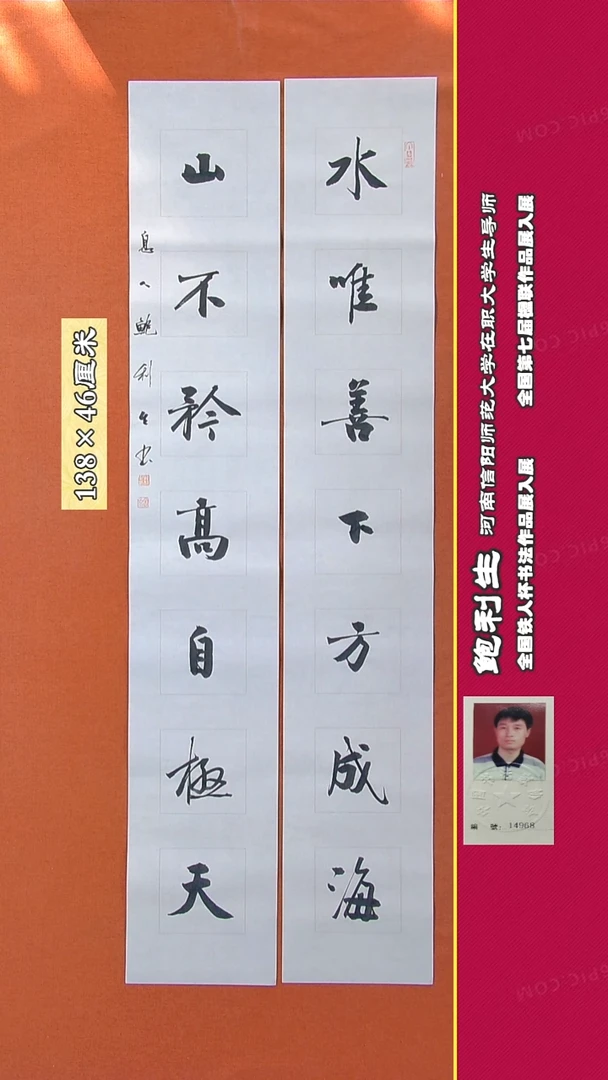 水唯善下方成海
山不矜高自極天
息人鲍利生书
138×46厘米
鲍利生 河南信阳师范大学在职大学生导师
全国铁人杯书法作品展入展 全国第七届楹联作品展入展
編號: 14968